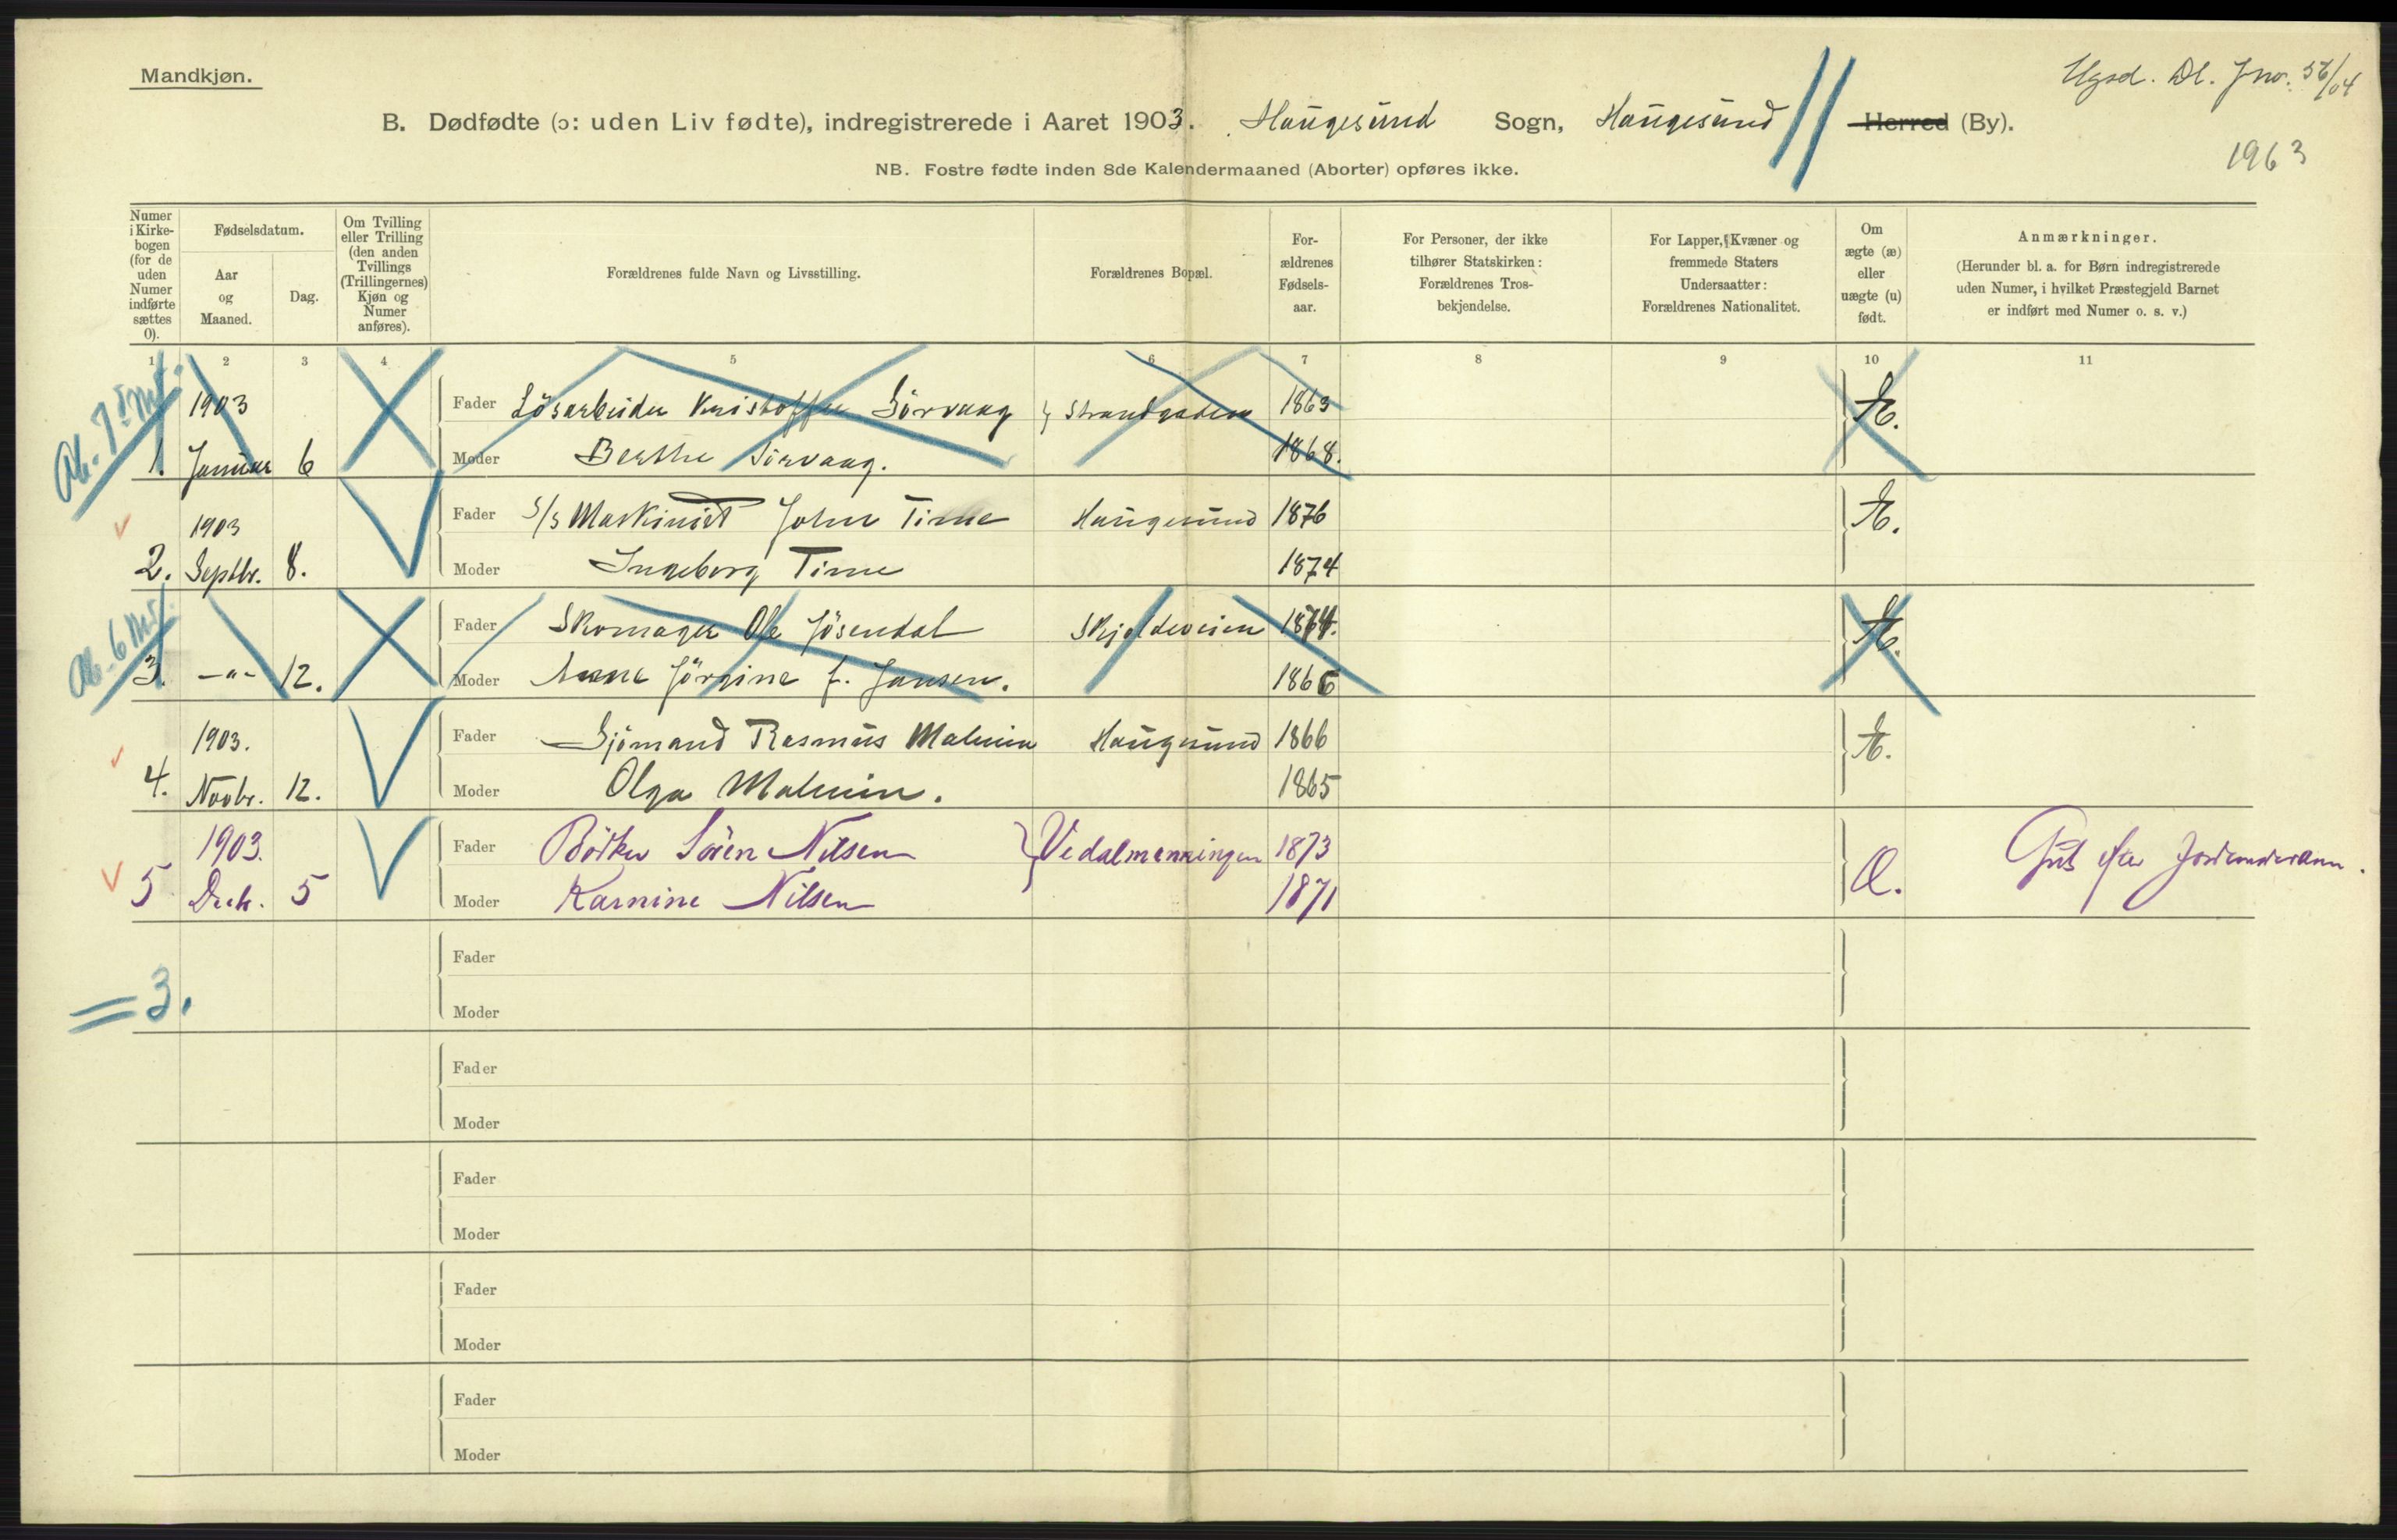 Mandkjøn.
Dl. Jno. 56/04
B. Dødfødte (ɔ: uden Liv fødte), indregistrerede i Aaret 1903. Haugesund Sogn, Haugesund Herred (By).
1963
NB. Fostre fødte inden 8de Kalendermaaned (Aborter) opføres ikke.
Numer i Kirke-bogen (for de uden Numer indførte sættes 0).
Fødselsdatum.
Aar og Maaned.
Dag.
Om Tvilling eller Trilling (den anden Tvillings (Trillingernes) Kjøn og Numer anføres).
Forældrenes fulde Navn og Livsstilling.
Forældrenes Bopæl.
For-ældrenes Fødsels-aar.
For Personer, der ikke tilhører Statskirken: Forældrenes Tros-bekjendelse.
For Lapper, Kvæner og fremmede Staters Undersaatter: Forældrenes Nationalitet.
Om ægte (æ) eller uægte (u) født.
Anmærkninger.
(Herunder bl. a. for Børn indregistrerede uden Numer, i hvilket Præstegjeld Barnet er indført med Numer o. s. v.)
1 2 3 4 5 6 7 8 9 10 11
Ab. 7 Mdr.
1903 Fader Lösarbeider Kristoffer Sörvaag Strandgaden 1863 Æ.
1. Januar 6 Moder Berthe Sörvaag. 1868.
1903 Fader S/S Maskinist John Time Haugesund 1876 Æ.
2. Septbr. 8. Moder Ingeborg Time 1874
Ab. 6 Mdr.
Fader Skomager Ole Jösendal Skjoldeveien 1874. Æ.
3. -"- 12. Moder Anna Jörgine f. Jansen. 1866
1903. Fader Sjömand Rasmus Malmin Haugesund 1866 Æ.
4. Novbr. 12. Moder Olga Malmin. 1865
1903. Fader Bödker Sören Nilsen Vedalmenningen 1873 Æ. Gut efter Jordemoderanm.
5 Decb. 5 Moder Karnine Nilsen 1871
Fader
= 3.
Moder
Fader
Moder
Fader
Moder
Fader
Moder
Fader
Moder